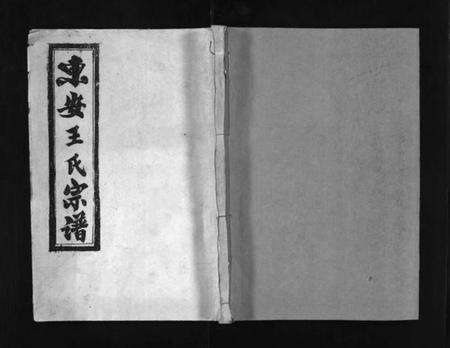 東安王氏宗譜